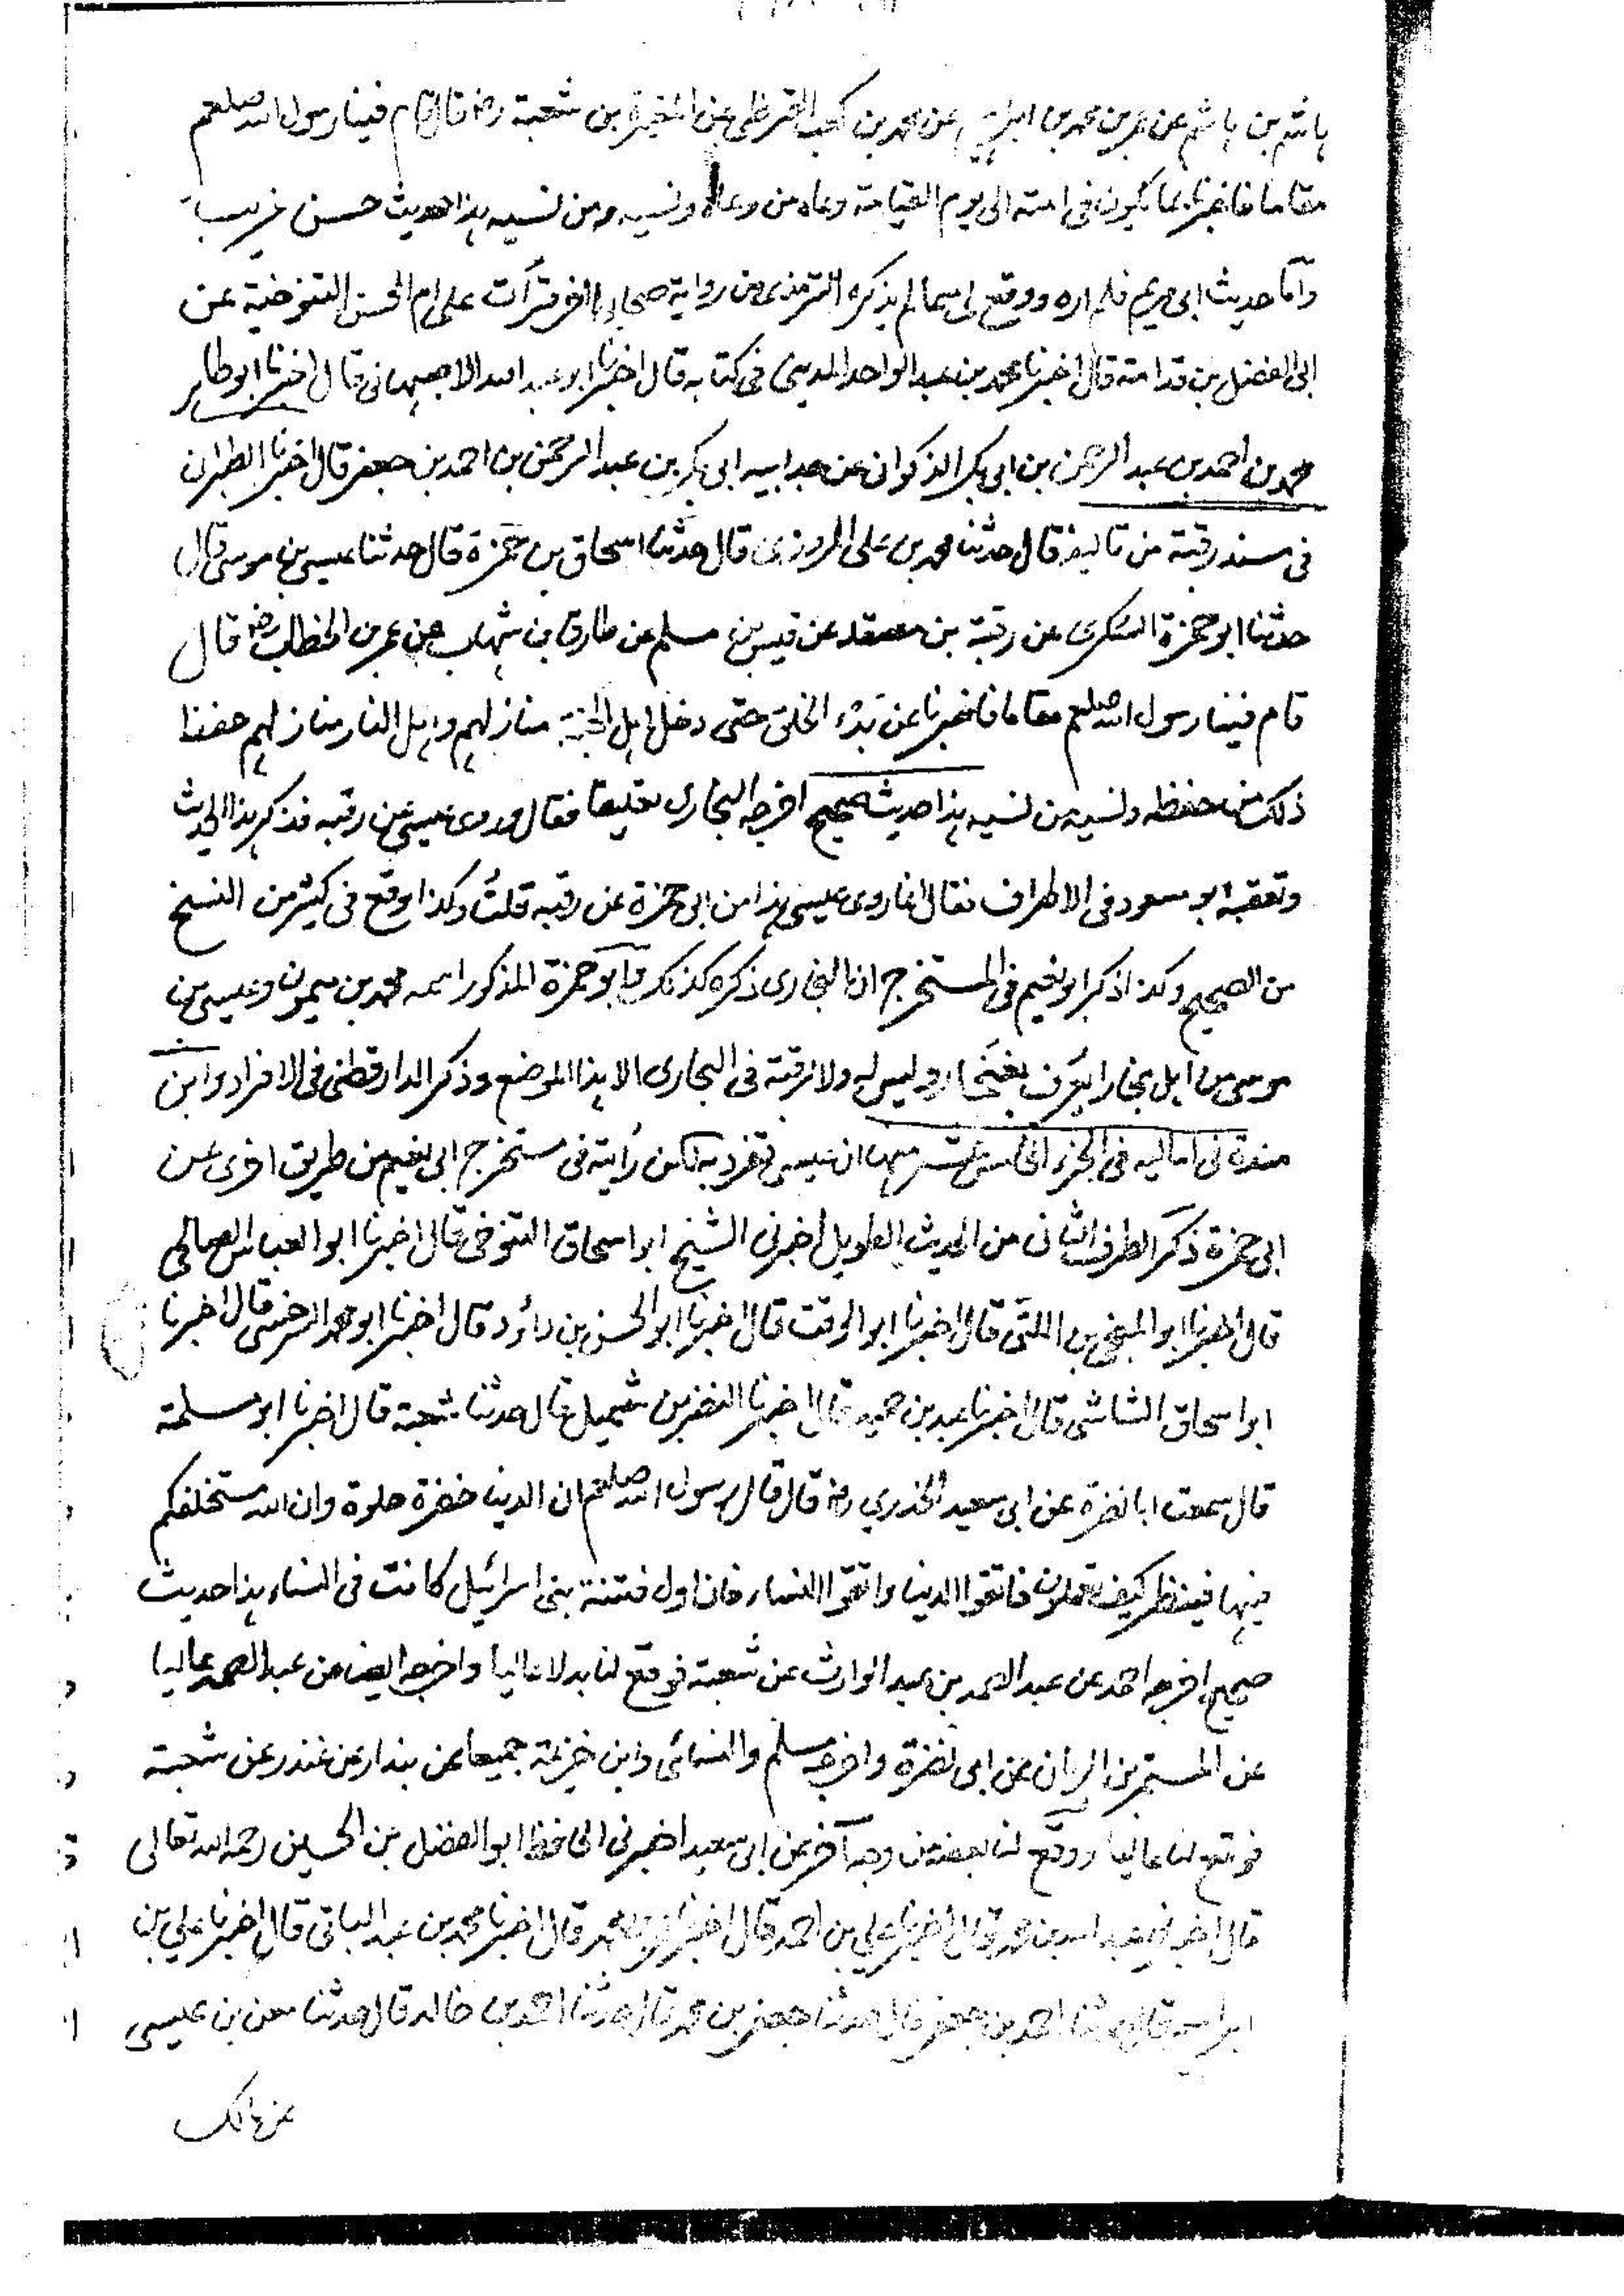 هاشم بن هاشم عن عمر بن محمد بن ابراهيم عن محمد بن كعب القرظى عن المغيرة بن شعبة رضـ قال قام فينا رسول الله صلعم
مقاما فاخبرنا بما يكون فى امته الى يوم القيامة وعاه من وعاه ونسيه من نسيه هذا حديث حسن غريب
وأما حديث ابى مريم فلم اره ووقع لى مما لم يذكره الترمذى من رواية صحابى آخر قرأت على ام الحسن التنوخية عن
ابى الفضل بن قدامة قال اخبرنا محمد بن عبد الواحد المدينى فى كتابه قال اخبرنا ابو عبد الله الاصبهانى قال اخبرنا ابو طاهر
محمد بن احمد بن عبد الرحمن بن ابى بكر الذكوانى عن جد ابيه ابى بكر بن عبد الرحمن بن احمد بن جعفر قال اخبرنا الطبرانى
فى مسند رقبة من تاليفه قال حدثنا محمد بن على المروزى قال حدثنا اسحاق بن حمزة قال حدثنا عيسى بن موسى قال
حدثنا ابو حمزة السكرى عن رقبة بن مصقلة عن قيس بن مسلم عن طارق بن شهاب عن عمر بن الخطاب رضـ قال
قام فينا رسول الله صلعم مقاما فاخبرنا عن بدء الخلق حتى دخل اهل الجنة منازلهم واهل النار منازلهم حفظ
ذلك من حفظه ونسيه من نسيه هذا حديث صحيح اخرجه البخارى تعليقا فقال وروى عيسى عن رقبه فذكر هذا الحديث
وتعقبه ابو مسعود فى الاطراف فقال انما روى عيسى هذا من ابى حمزة عن رقبه قلت وكذا وقع فى كثير من النسخ
من الصحيح وكذا ذكر ابو نعيم فى المستخرج ان البخارى ذكره كذلك وابو حمزة المذكور اسمه محمد بن ميمون وعيسى بن
موسى من اهل بخارا يعرف بغنجار وليس له ولا لرقبة فى البخارى الا هذا الموضع وذكر الدارقطنى فى الافراد وابن
مندة فى اماليه فى الجزء الخامس عشر منها ان عيسى تفرد به لكن رأيته فى مستخرج ابى نعيم من طريق اخرى عن
ابى حمزة ذكر الطرف الثانى من الحديث الطويل اخبرنى الشيخ ابو اسحاق التنوخى قال اخبرنا ابو العباس الصالحى
قال اخبرنا ابو المنجى بن اللتى قال اخبرنا ابو الوقت قال اخبرنا ابو الحسن بن داؤد قال اخبرنا ابو محمد السرخسى قال اخبرنا
ابو اسحاق الشاشى قال اخبرنا عبد بن حميد قال اخبرنا النضر بن شميل قال حدثنا شعبة قال اخبرنا ابو مسلمة
قال سمعت ابا نضرة عن ابى سعيد الخدري رضـ قال قال رسول الله صلعم ان الدنيا خضرة حلوة وان الله مستخلفكم
فيها فينظر كيف تعملون فاتقوا الدنيا واتقوا النساء فان اول فتنة بنى اسرائيل كانت فى النساء هذا حديث
صحيح اخرجه احمد عن عبد الصمد بن عبد الوارث عن شعبة فوقع لنا بدلا عاليا واخرجه ايضا من عبد الصمد عاليا
عن المستمر بن الريان عن ابى نضرة واخرجه مسلم والنسائى وابن خزيمة جميعا عن بندار عن غندر عن شعبة
فوقع لنا عاليا ووقع لنا بعضه من وجه آخر عن ابى سعيد اخبرنى الحافظ ابو الفضل بن الحسين رحمه الله تعالى
قال اخبرنى عبد الله بن محمد قال اخبرنا علي بن احمد قال اخبرنا محمد قال اخبرنا محمد بن عبد الباقى قال اخبرنا علي بن
ابراهيم قال حدثنا احمد بن جعفر قال حدثنا جعفر بن محمد قال حدثنا احمد بن خالد قال حدثنا معن بن عيسى
عن مالك